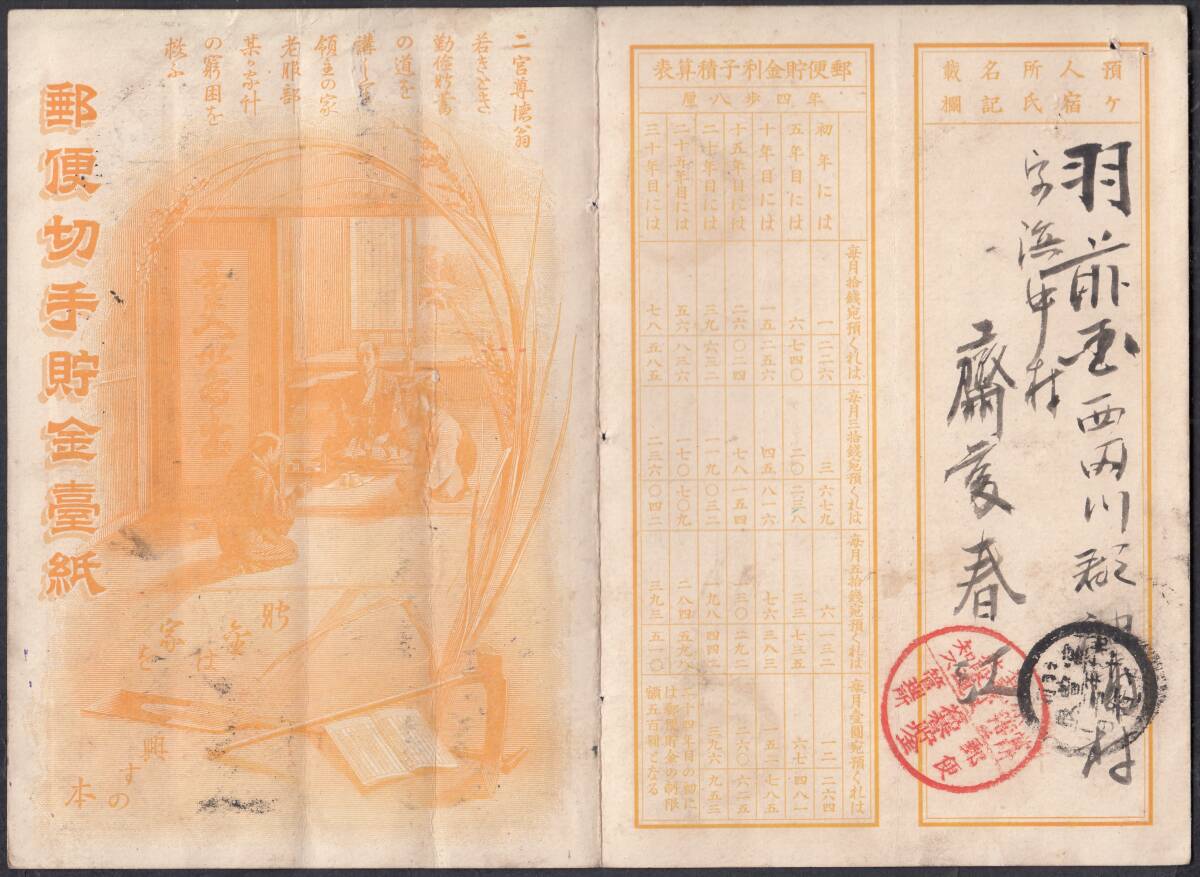 預ケ人宿所氏名記載欄
羽前国西田川郡袖浦村
字浜中村
齋藤春江
郵便貯金利子積算表
年四歩八厘
毎月拾錢宛預くれは
毎月三拾錢宛預くれは
毎月五拾錢宛預くれは
毎月壹圓宛預くれは
初年には 一二二六 三六七九 六一三二 一二二六四
五年目には 六七四〇 二〇二三八 三三七三五 六七四八一
十年目には 一五二五六 四五八一六 七六三八三 一五二七八五
十五年目には 二六〇二四 七八一五四 一三〇二九二 二六〇六二五
二十年目には 三九六三二 一一九〇三二 一九八四四二 三九六九五三
二十五年目には 五六八三六 一七〇七〇九 二八四五九八
三十年目には 七八五八五 二三六〇四二 三九三五一〇
二十四年目の初に
は郵便貯金の制限
額五百圓となる
二宮尊徳翁
若きとき
勤儉貯蓄
の道を
講して
領主の家
老服部
某の家計
の窮困を
救ふ
貯金は家を興すの本
郵便切手貯金臺紙